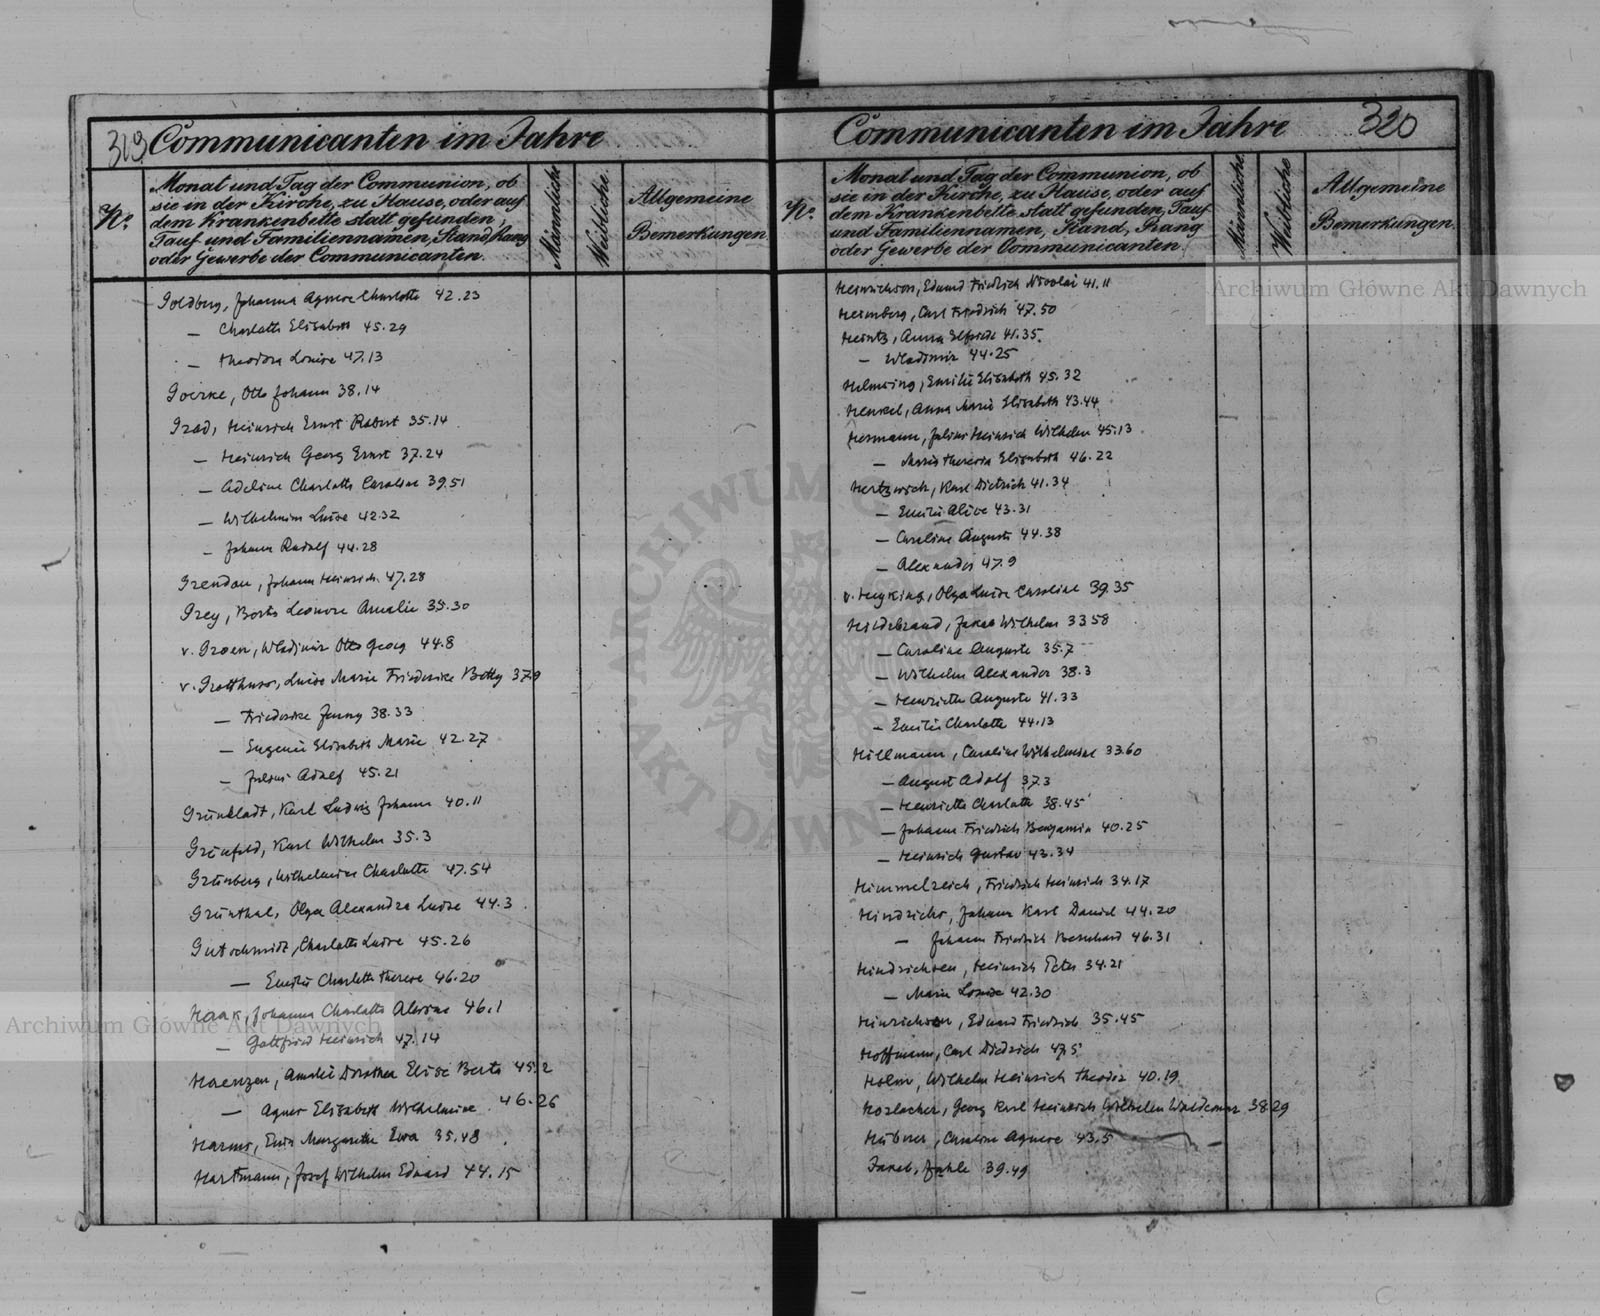 319 Communicanten im Jahre
No.
Monat und Tag der Communion, ob
sie in der Kirche, zu Hause, oder auf
dem Krankenbette statt gefunden,
Tauf und Familiennamen, Stand, Rang
oder Gewerbe der Communicanten.
Männliche
Weibliche
Allgemeine
Bemerkungen.
Goldberg, Johanna Agnese Charlotte 42.23
— Charlotte Elisabeth 45.29
— Theodora Louise 47.13
Goerke, Otto Johann 38.14
Grad, Heinrich Ernst Robert 35.14
— Heinrich Georg Ernst 37.24
— Adeline Charlotte Caroline 39.51
— Wilhelmine Luise 42.32
— Johann Rudolf 44.28
Grendau, Johann Heinrich 47.28
Grey, Berta Leonore Amalie 35.30
v. Groen, Wladimir Otto Georg 44.8
v. Grotthuss, Luise Marie Friederike Betty 37.9
— Friederike Jenny 38.33
— Eugenie Elisabeth Marie 42.27
— Julius Adolf 45.21
Grünbladt, Karl Ludwig Johann 40.11
Grünfeld, Karl Wilhelm 35.3
Grünberg, Wilhelmine Charlotte 47.54
Grünthal, Olga Alexandra Luise 44.3
Gutschmidt, Charlotte Luise 45.26
— Emilie Charlotte Therese 46.20
Haak, Johanna Charlotte Alwine 46.1
— Gottfried Heinrich 47.14
Haenzen, Amalie Dorothea Elise Berta 45.2
— Agnes Elisabeth Wilhelmine 46.26
Harms, Margarethe Ewa 35.48
Hartmann, Josef Wilhelm Eduard 44.15
Communicanten im Jahre 320
No.
Monat und Tag der Communion, ob
sie in der Kirche, zu Hause, oder auf
dem Krankenbette statt gefunden, Tauf
und Familiennamen, Stand, Rang
oder Gewerbe der Communicanten.
Männliche
Weibliche
Allgemeine
Bemerkungen.
Heinrichson, Eduard Friedrich Nicolai 41.11
Heimberg, Carl Friedrich 47.50
Heintz, Anna Elfriede 41.35
— Wladimir 44.25
Helmsing, Emilie Elisabeth 45.32
Henkel, Anna Marie Elisabeth 43.44
Hermann, Julius Heinrich Wilhelm 45.13
— Marie Theresia Elisabeth 46.22
Hertzwich, Karl Dietrich 41.34
— Emilie Alice 43.31
— Caroline Auguste 44.38
— Alexander 47.9
v. Heyking, Olga Luise Caroline 39.35
Hildebrand, Jakob Wilhelm 33.58
— Caroline Auguste 35.7
— Wilhelm Alexander 38.3
— Henriette Auguste 41.33
— Emilie Charlotte 44.13
Hillmann, Caroline Wilhelmine 33.60
— August Adolf 37.3
— Henriette Charlotte 38.45
— Johann Friedrich Benjamin 40.25
— Heinrich Gustav 43.34
Himmelreich, Friedrich Heinrich 34.17
Hindrichs, Johann Karl Daniel 44.20
— Johann Friedrich Bernhard 46.31
Hindrichsen, Heinrich Peter 34.21
— Marie Louise 42.30
Hinrichson, Eduard Friedrich 35.45
Hoffmann, Carl Diedrich 47.5
Holm, Wilhelm Heinrich Theodor 40.19
Horlacher, Georg Karl Heinrich Wilhelm Woldemar 38.29
Hübner, Caroline Agnese 43.5
Jakob, Jahle 39.49
Archiwum Główne Akt Dawnych
Archiwum Główne Akt Dawnych
ARCHIWUM G
AKT DAWN